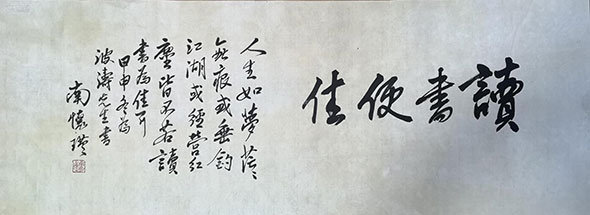 讀書便佳
人生如夢
無痕或垂釣
江湖或經營紅
塵皆不若讀
書為佳耳
甲申冬為
波濤先生書
南懷瑾